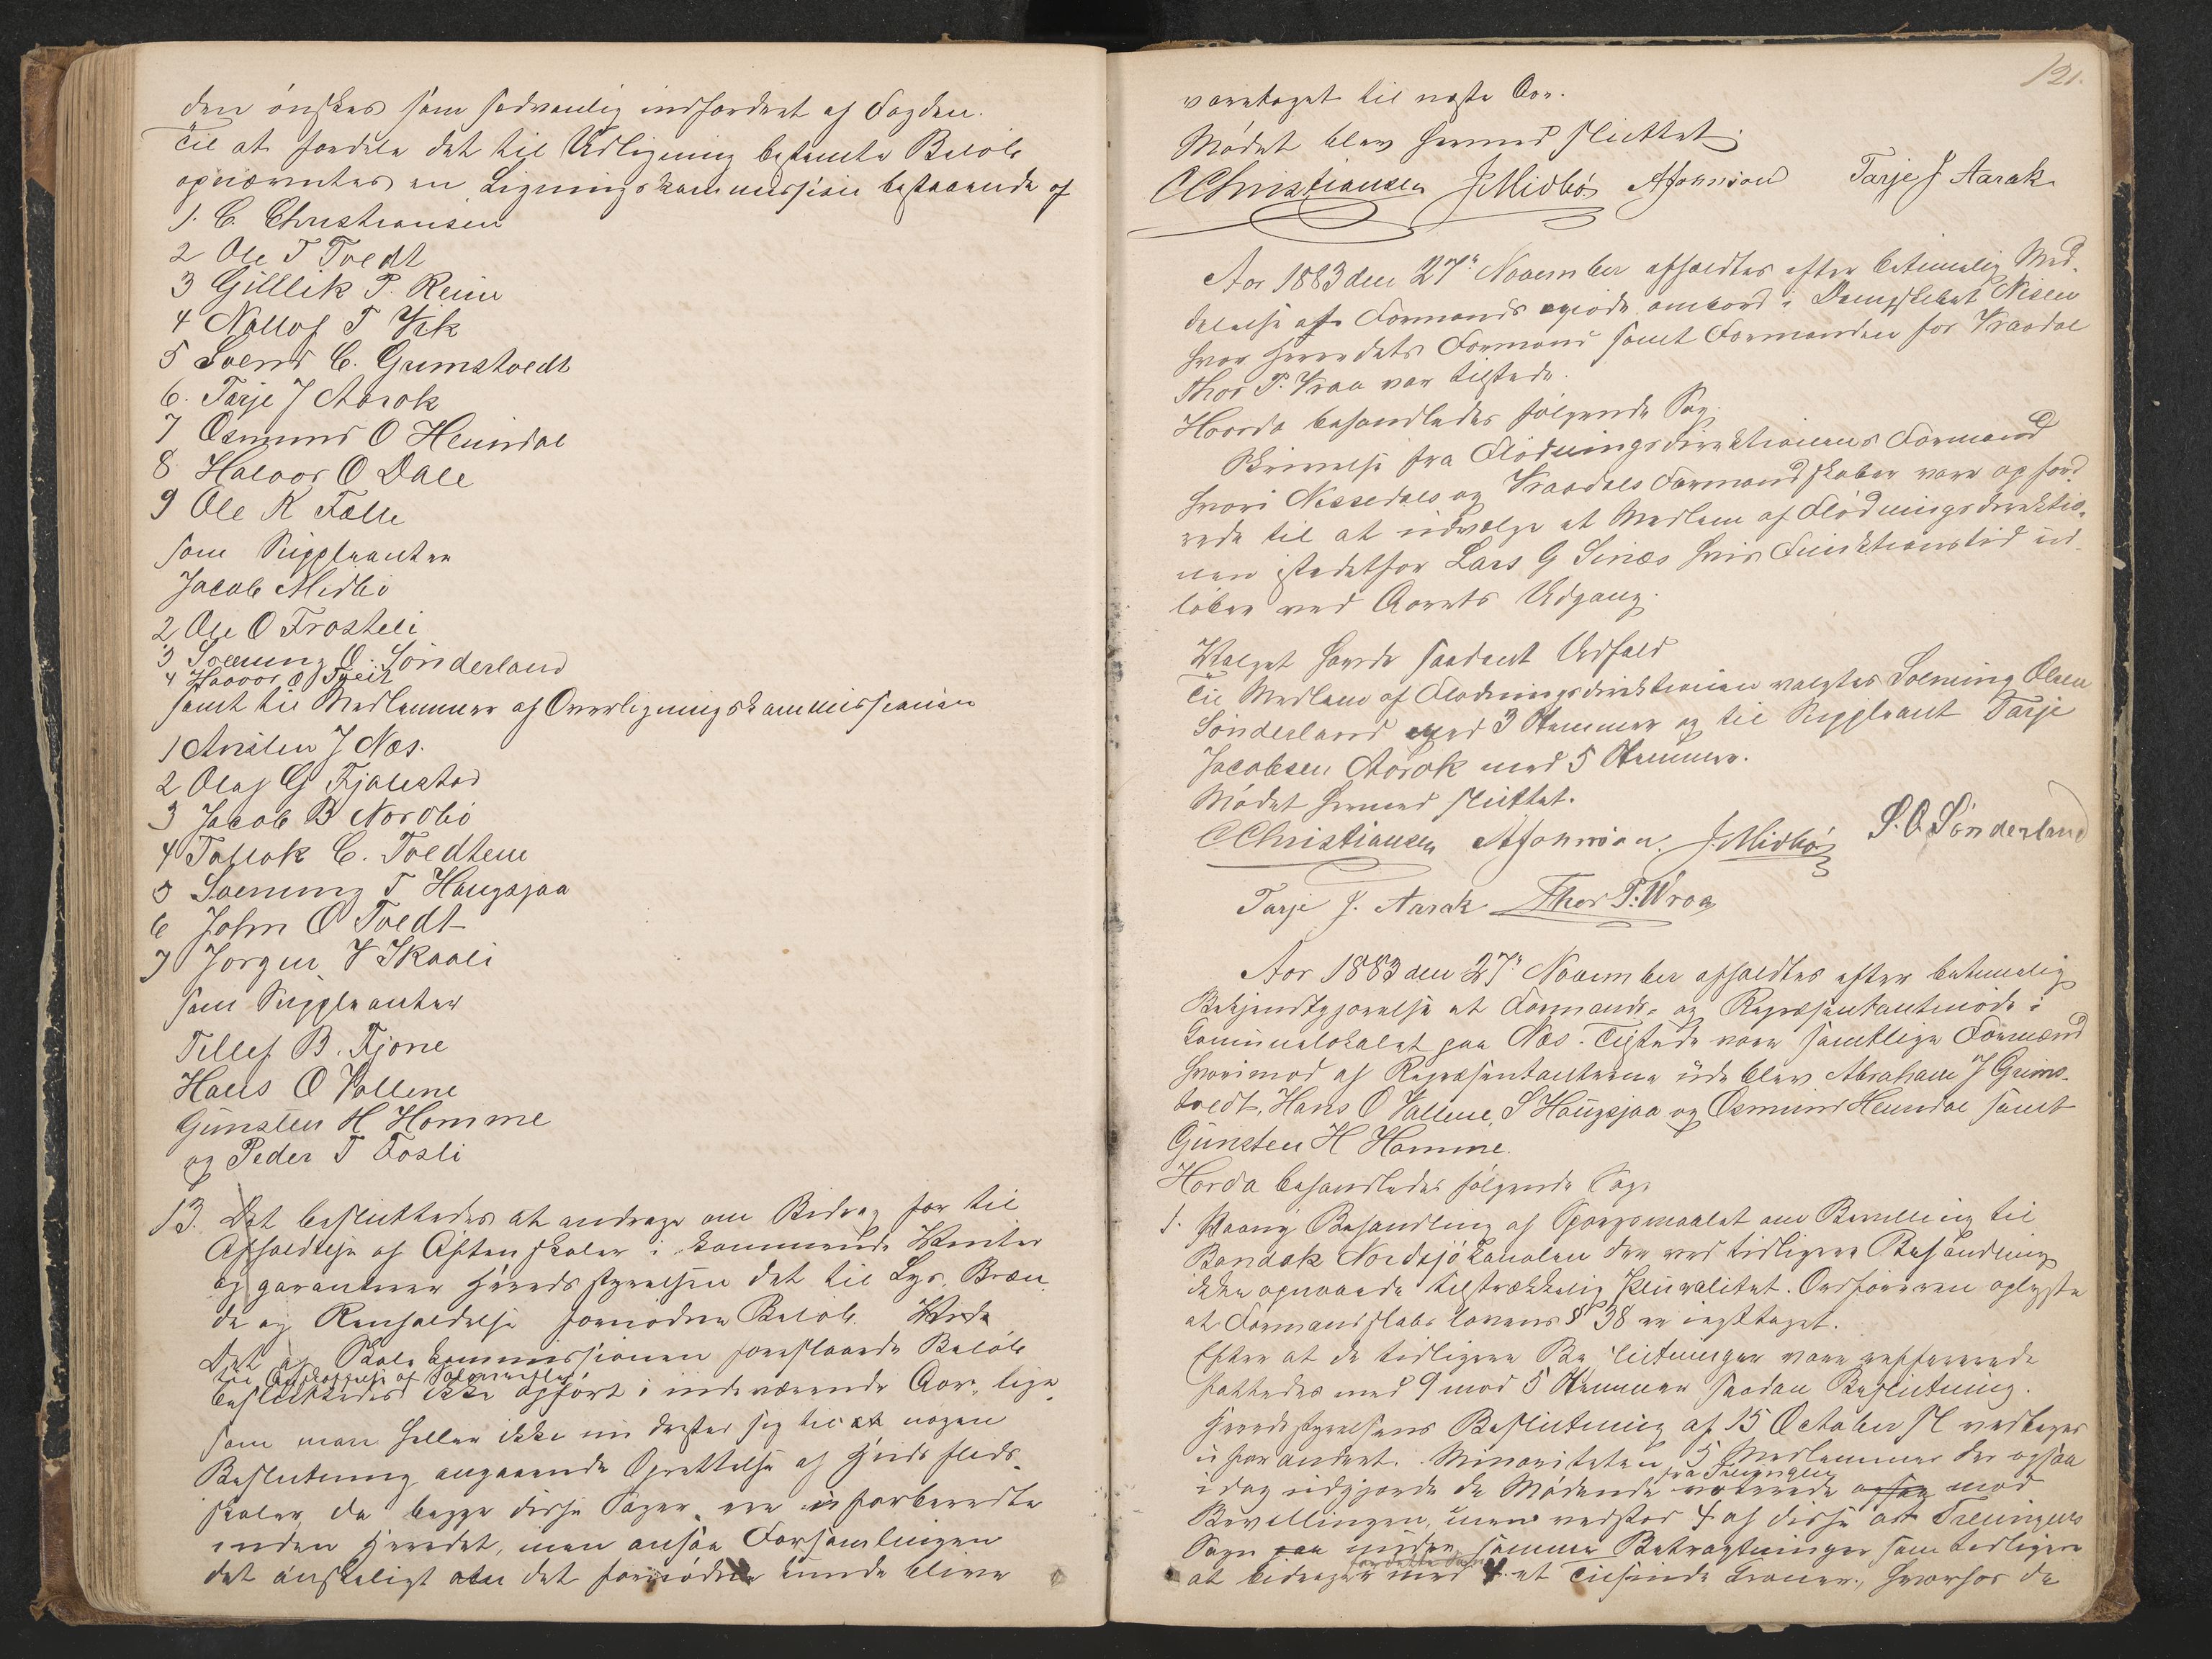 den önskes som sedvanlig indfordret af Fogden.
Til at fordele det til Udligning bestemte Belöb
opnævntes en Ligningskommission bestaaende af
1. C. Christiansen
2 Ole T Tvedt
3 Gullik P. Reine
4 Nollof T Vik
5 Svend C. Grimstvedt
6. Tarje J Aarak
7 Osmund O Heimdal
8 Halvor O Dale
9 Ole K Felle
som Suppleanter
Jacob Midbö
2 Ole O Frosteli
3 Sveinung O. Sönderland
4 Halvor O Tveit
samt til Medlemmer af Overligningskommissionen
1 Anslen J Næs.
2 Olaf G Fjalestad
3 Jacob B Nordbö
4 Tallok C. Tvedten
5 Sveinung T Haugsjaa
6 John O Tvedt
7 Jörgen V Skaali
som Suppleanter
Tellef B. Fjone
Hans O Vallene
Gunsten H Homme
og Peder T Fosli
13. Det besluttedes at andrage om Bidrag for til
Afholdelse af Aftenskoler i kommende Vinter
og garanterer Heredsstyrelsen det til Lys, Bræn
de og Renholdelse fornödne Belöb.
Det af Skolekommissionen foreslaaede Belöb
til Anskaffelse af
besluttedes ikke opfört i indeværende Aar, lige
som man heller ikke indester sig til at nogen
Beslutning angaaende Oprettelse af Husflids
skoler, da begge disse Sager ere uforberedte
inden Heredet, men ansaa Forsamlingen
det önskeligt om det fornödne kunde blive
121.
varetaget til næste Aar.
Mödet blev hermed sluttet.
C Christiansen J Midbö A Johnson Tarje J Aarak
Aar 1883 den 27de November afholdtes efter betimelig Med
delelse af Formands möde ombord i Dampskibet Nisser
hvor Heredets Formænd samt Formanden for Vraadal
Thor P. Vraa var tilstede.
Hvorda behandledes fölgende Sag.
Skrivelse fra Flödningsdirektionens Formand
hvori Nissedals og Vraadals Formandskaber vare opford
rede til at udvælge et Medlem af Flödningsdirektio
nen istedetfor Lars G Sines hvis Funktionstid ud
löber ved Aarets Udgang.
Valget havde saadant Udfald
Til Medlem af Flödningsdirektionen valgtes Sveinung Olsen
Sönderland med 3 Stemmer og til Suppleant Tarje
Jacobsen Aarak med 5 Stemmer.
Mödet hermed sluttet.
C Christiansen A Johnson. J. Midbö S. O. Sönderland
Tarje J. Aarak Thor P. Wraa
Aar 1883 den 27de November afholdtes efter betimelig
Bekjendtgjörelse et Formands- og Repræsentantmöde i
Komunelokalet paa Næs. Tilstede vare samtlige Formænd
hvorimod af Repræsentanterne udeblev Abraham J Grims
tvedt, Hans O Vallene, S Haugsjaa og Osmund Heimdal samt
Gunsten H Homme.
Hvorda behandledes fölgende Sag.
1. Paany Behandling af Spörgsmaalet om Bevilling til
Bandak Nordsjökanalen der ved tidligere Behandling
ikke opnaaede tilstrækkelig Pluralitet. Ordföreren oplyste
at Formandskabslovens § 38 er iagttaget.
Efter at de tidligere Beslutninger vare refererede
fattedes med 9 mod 5 Stemmer saadan Beslutning.
Heredsstyrelsens Beslutning af 15 October sl vedtages
uforandret. Minoriteten 5 Medlemmer der ogsaa
fra Treungen
i dag udgjorde de Mödende voterede ogsaa mod
Bevillingen, men vedstod 4 af disse at Treungens
Sogn paa under samme Betragtninger som tidligere
for dette Sogn
at bidrager med et Tusinde Kroner, hvorfor de